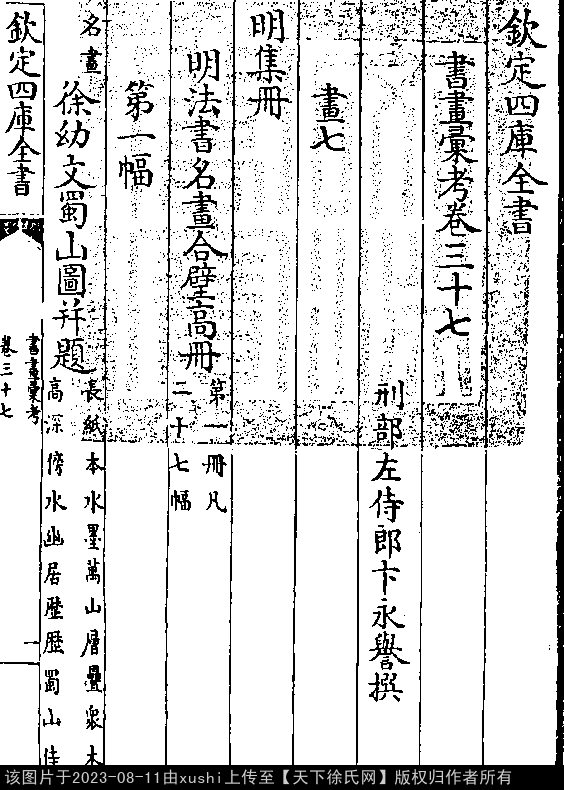 欽定四庫全書
書畫彙考卷三十七
刑部左侍郎卞永譽撰
畫七
明集冊
明法書名畫合壁高冊
第一冊凡
二十七幅
第一幅
名畫
徐幼文蜀山圖并題
長紙本水墨萬山層疊衆木
高深傍水幽居歷歷蜀山佳
欽定四庫全書
書畫彙考
卷三十七
一
该图片于2023-08-11由xushi上传至【天下徐氏网】版权归作者所有